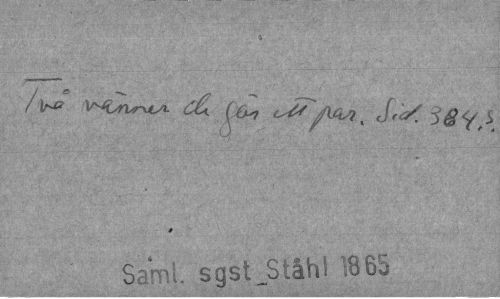 Två vänner de gör ett par. Sid. 384.?.
Saml. sgst_Ståhl 1865